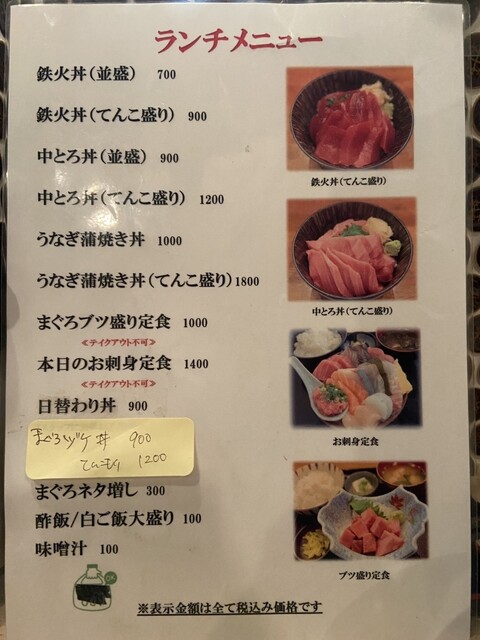 ランチメニュー
鉄火丼(並盛) 700
鉄火丼(てんこ盛り) 900
中とろ丼(並盛) 900
中とろ丼(てんこ盛り) 1200
うなぎ蒲焼き丼 1000
うなぎ蒲焼き丼(てんこ盛り)1800
まぐろブツ盛り定食 1000
≪テイクアウト不可≫
本日のお刺身定食 1400
≪テイクアウト不可≫
日替わり丼 900
まぐろヅケ丼 900
てんこもり 1200
まぐろネタ増し 300
酢飯/白ご飯大盛り 100
味噌汁 100
鉄火丼(てんこ盛り)
中とろ丼(てんこ盛り)
お刺身定食
ブツ盛り定食
OK
※表示金額は全て税込み価格です